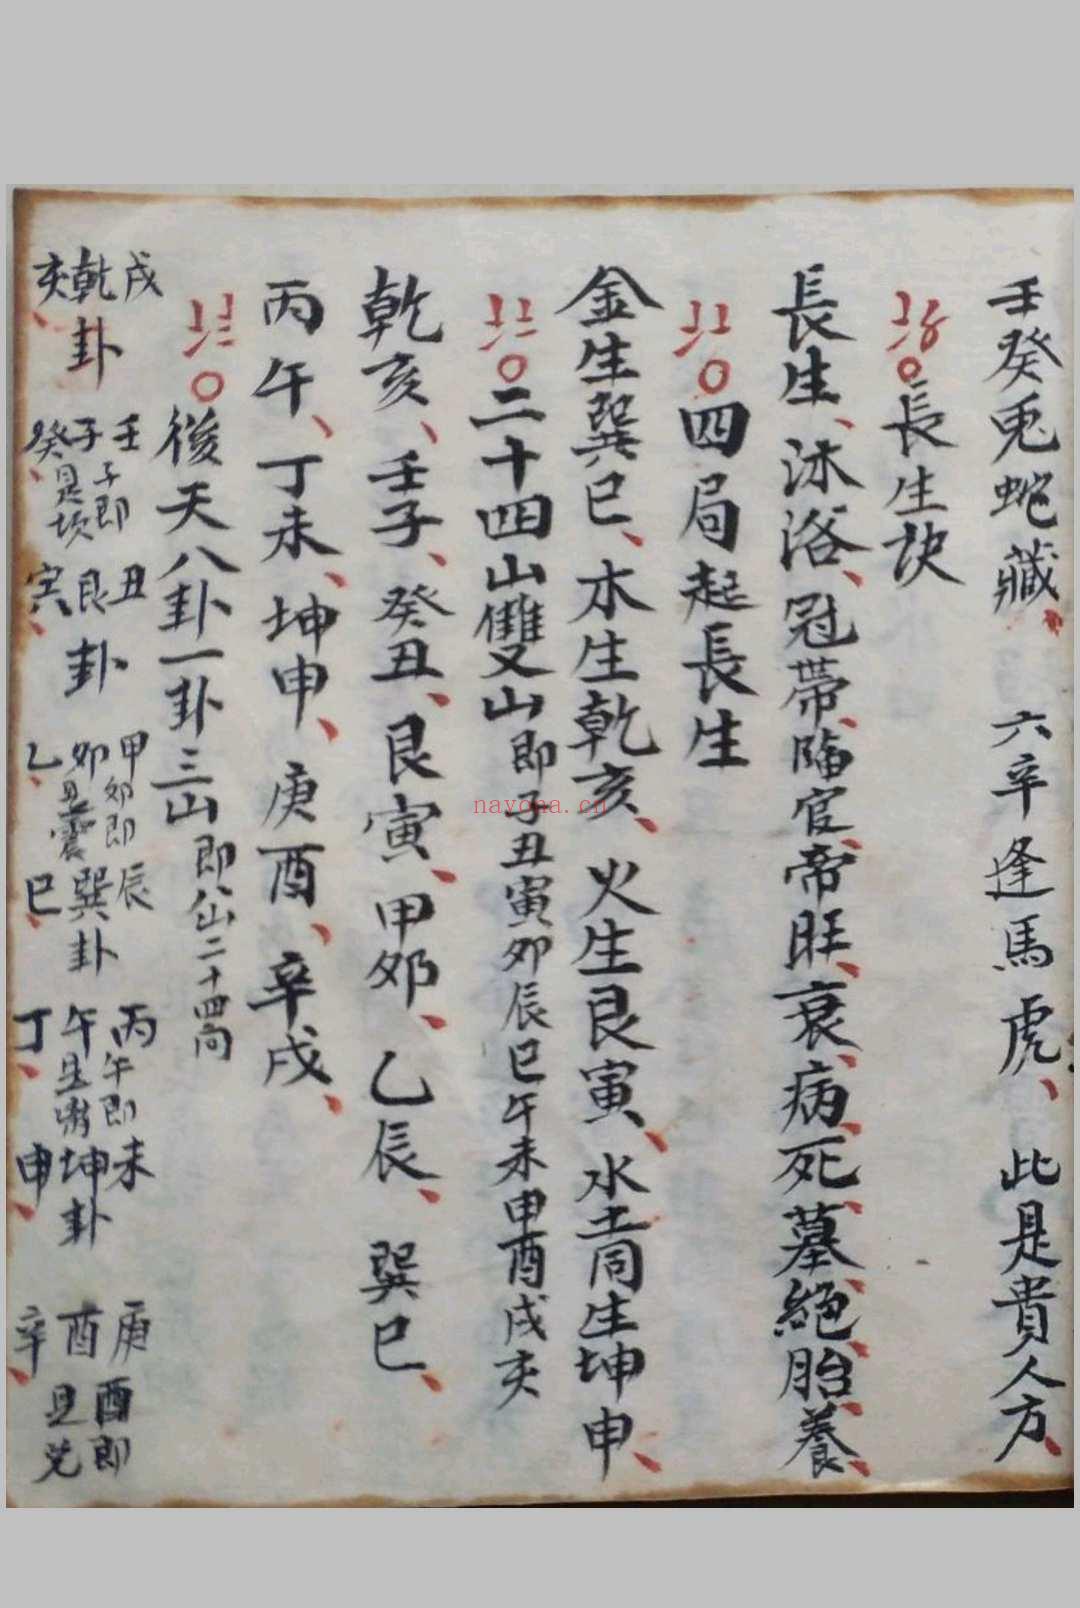 壬癸兎蛇藏、六辛逢馬虎、此是貴人方、
〇長生訣
長生、沐浴、冠帶、臨官、帝旺、衰、病、死、墓、絕、胎、養、
〇四局起長生
金生巽巳、木生乾亥、火生艮寅、水土同生坤申、
〇二十四山雙山即子丑寅卯辰巳午未申酉戌亥
乾亥、壬子、癸丑、艮寅、甲卯、乙辰、巽巳、
丙午、丁未、坤申、庚酉、辛戌、
〇後天八卦一卦三山即八山二十四向
戌乾亥、卦
壬子癸、子即是坎
丑艮寅、卦
甲卯乙、卯即是震
辰巽巳、卦
丙午丁、午即是
未坤申、卦
庚酉辛、酉即是兌
nayona.cn